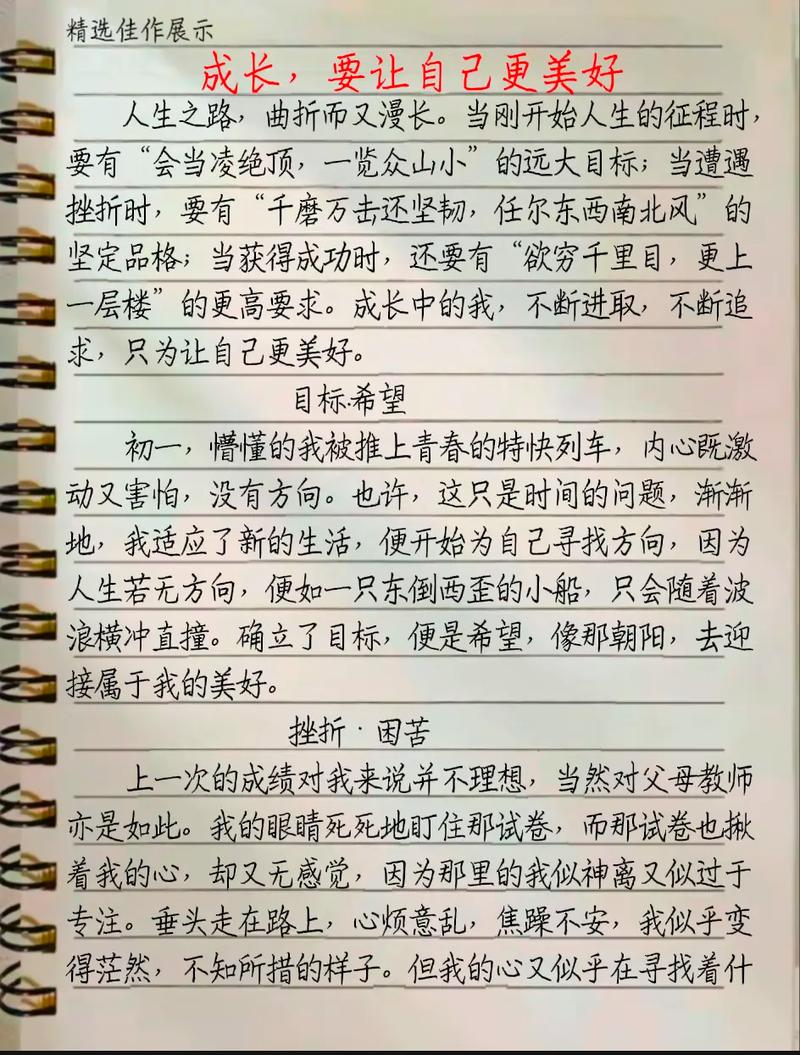 精选佳作展示
成长，要让自己更美好
人生之路，曲折而又漫长。当刚开始人生的征程时，
要有“会当凌绝顶，一览众山小”的远大目标；当遭遇
挫折时，要有“千磨万击还坚韧，任尔东西南北风”的
坚定品格；当获得成功时，还要有“欲穷千里目，更上
一层楼”的更高要求。成长中的我，不断进取，不断追
求，只为让自己更美好。
目标·希望
初一，懵懂的我被推上青春的特快列车，内心既激
动又害怕，没有方向。也许，这只是时间的问题，渐渐
地，我适应了新的生活，便开始为自己寻找方向，因为
人生若无方向，便如一只东倒西歪的小船，只会随着波
浪横冲直撞。确立了目标，便是希望，像那朝阳，去迎
接属于我的美好。
挫折·困苦
上一次的成绩对我来说并不理想，当然对父母教师
亦是如此。我的眼睛死死地盯住那试卷，而那试卷也揪
着我的心，却又无感觉，因为那里的我似神离又似过于
专注。垂头走在路上，心烦意乱，焦躁不安，我似乎变
得茫然，不知所措的样子。但我的心又似乎在寻找着什